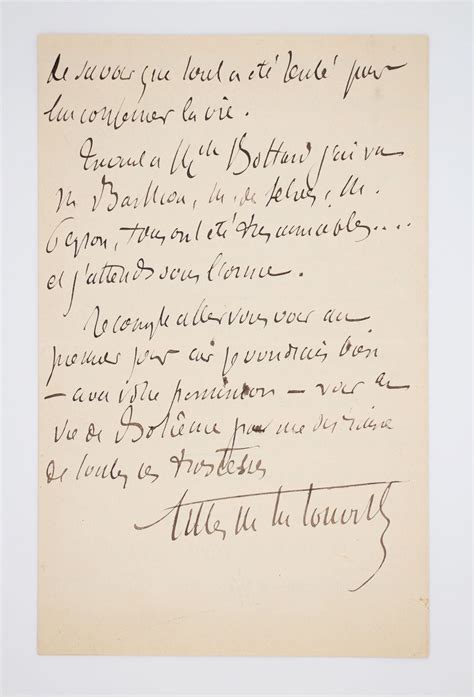 de savoir que tout a été tenté pour
lui conserver la vie.
Quant à Mlle Bottard j'ai vu
M. Barthou, M. de Selves, M.
Peyron, tous ont été très aimables....
et j'attends sous l'orme.
Je compte aller vous voir au
premier jour car je voudrais bien
– avec votre permission – voir la
vie de Bohême pour me distraire
de toutes ces tristesses
Gilles de la Tourette